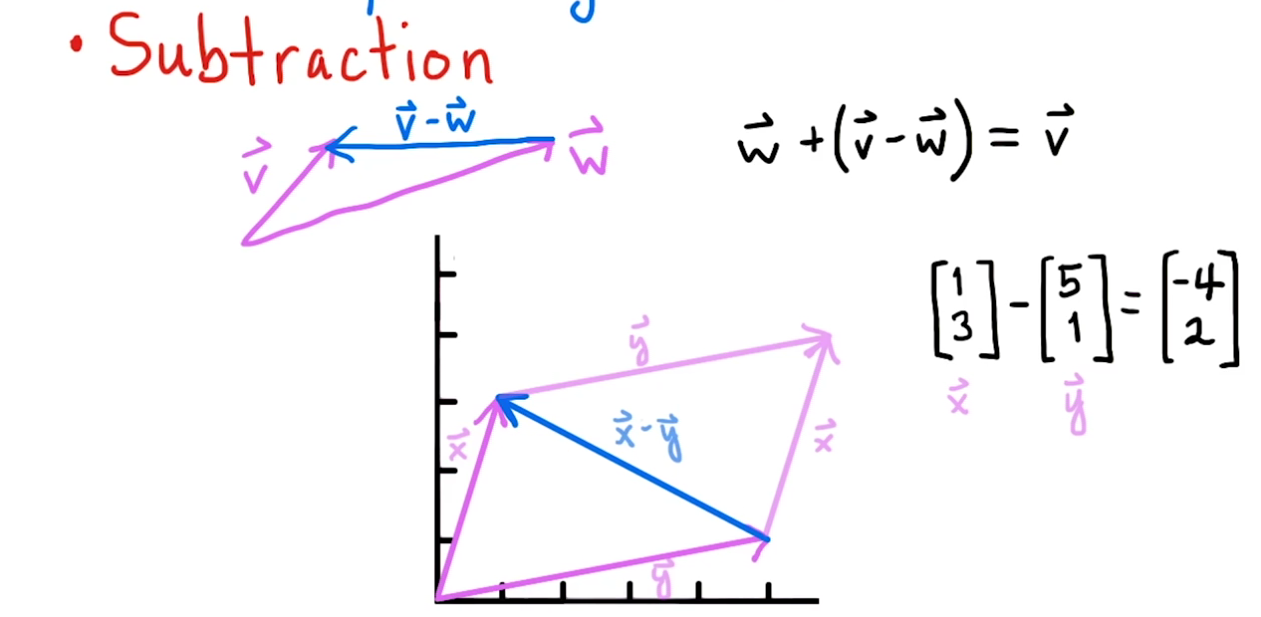 • Subtraction
v⃗ - w⃗
v⃗
w⃗
w⃗ + (v⃗ - w⃗) = v⃗
[1 3] - [5 1] = [-4 2]
x⃗ y⃗
y⃗
x⃗
x⃗ - y⃗
x⃗
y⃗